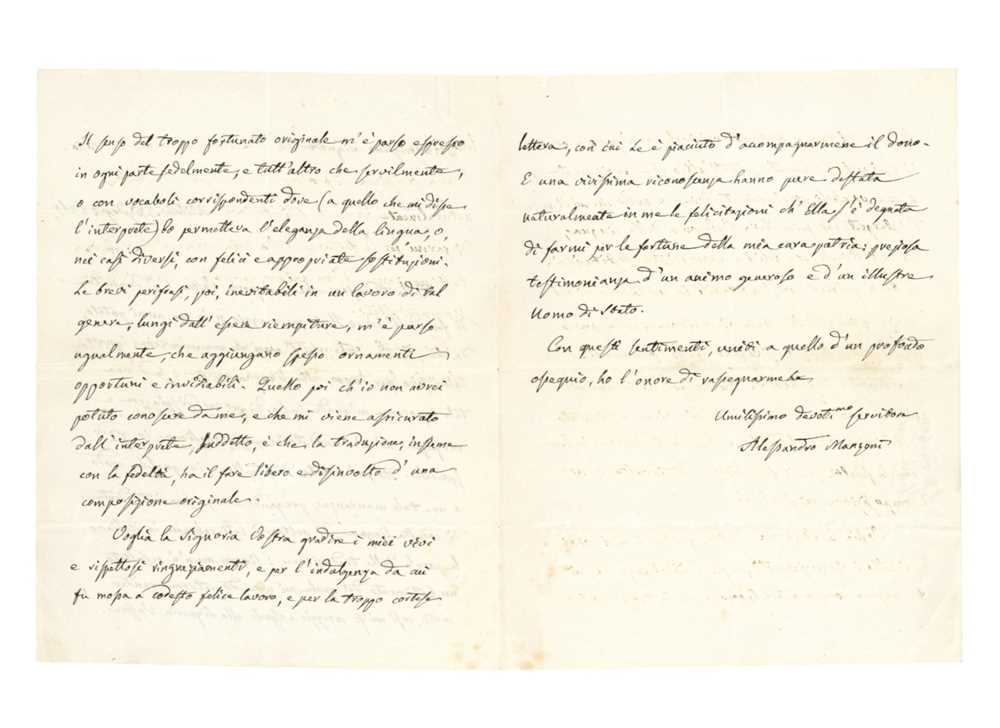 Il senso del troppo fortunato originale m'è parso espresso
in ogni parte fedelmente, e tutt'altro che servilmente,
o con vocaboli corrispondenti dove (a quello che mi disse
l'interprete) lo permetteva l'eleganza della lingua, o,
nei casi diversi, con felici e appropriate sostituzioni.
Le brevi perifrasi, poi, inevitabili in un lavoro di tal
genere, lungi dall'essere riempiture, m'è parso
ugualmente, che aggiungano spesso ornamenti
opportuni e invidiabili. Quello poi ch'io non avrei
potuto conoscere da me, e che mi viene assicurato
dall'interprete suddetto, è che la traduzione, insieme
con la fedeltà, ha il fare libero e disinvolto d'una
composizione originale.
Voglia la Signoria Vostra gradire i miei vivi
e rispettosi ringraziamenti, e per l'indulgenza da cui
fu mossa a codesto felice lavoro, e per la troppo cortese
lettera, con cui Le è piaciuto d'acompagnarmene il dono.
E una vivissima riconoscenza hanno pure destata
naturalmente in me le felicitazioni ch'Ella s'è degnata
di farmi per le fortune della mia cara patria: preziosa
testimonianza d'un animo generoso e d'un illustre
Uomo di Stato.
Con questi sentimenti, uniti a quello d'un profondo
ossequio, ho l'onore di rassegnarmele
Umilissimo devot.mo servitore
Alessandro Manzoni